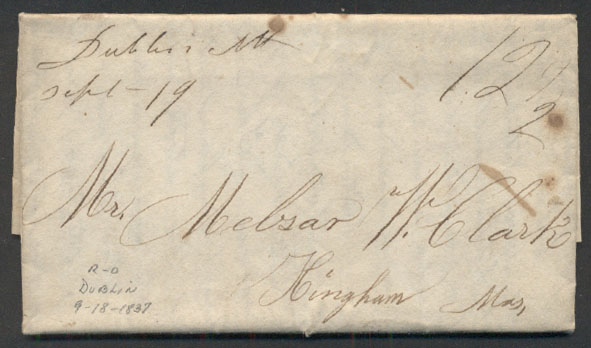 Dublin NH
Sept 19
12 1/2
Mr. Melzar W. Clark
Hingham Mas,
R-O
DUBLIN
9-18-1837